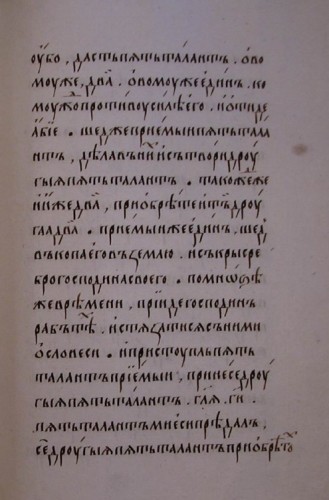 ѹ҆бо , дастьпѧтьталантъ . ѻ҆во
моуже , два . ѻ҆вомоужеѐдинъ . ко
моуждопротивоусилѣе҆го . иѿиде
а҆бїе . шеджеприемыипѧтьтала
нтъ , дѣлавъни́хъсътворидроу
гыѧпѧтьталантъ . такожеже
и҆и́жедва , приобрѣтеитъдроу
гаадва . приемыижеѐдинъ , шед
въкопаегоⷡ҇землю . исъкрысре
брогосподинасвоего . помноѕѣ
жевремени , прїидегосподинъ
рабътѣⷯ . истѧзатисѧсъними
о҆словеси . ипристоупльпѧть
талантъприемыи , принеседроу
гыѧпѧтьталантъ . глѧ . ги .
пѧтьталантъмиѐсипредалъ ,
сѐдроугыѧпѧтьталантъприобрѣтоⷯ